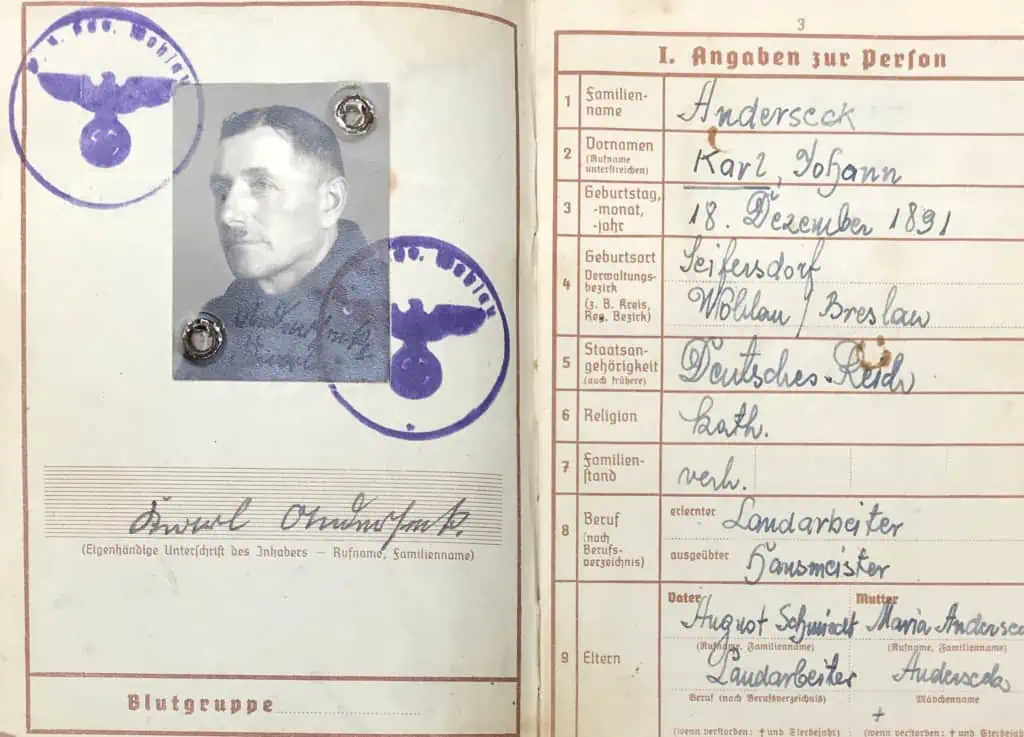 Kdo. Wohlau
Kdo. Wohlau
Karl Anderseck.
(Eigenhändige Unterschrift des Inhabers — Rufname, Familienname)
Blutgruppe
3
I. Angaben zur Person
1 Familien-
name
Anderseck
2 Vornamen
(Rufname
unterstreichen)
Karl, Johann
3 Geburtstag,
-monat,
-jahr
18. Dezember 1891
4 Geburtsort
Verwaltungs-
bezirk
(z. B. Kreis,
Reg. Bezirk)
Seifersdorf
Wohlau / Breslau
5 Staatsan-
gehörigkeit
(auch frühere)
Deutsches-Reich
6 Religion
kath.
7 Familien-
stand
verh.
8 Beruf
(nach
Berufs-
verzeichnis)
erlernter Landarbeiter
ausgeübter Hausmeister
9 Eltern
Vater Mutter
August Schmidt Maria Anderseck
(Rufname, Familienname) (Rufname, Familienname)
Landarbeiter Anderseck
Beruf (nach Berufsverzeichnis) Mädchenname
+
(wenn verstorben: † und Sterbejahr) (wenn verstorben: † und Sterbejahr)